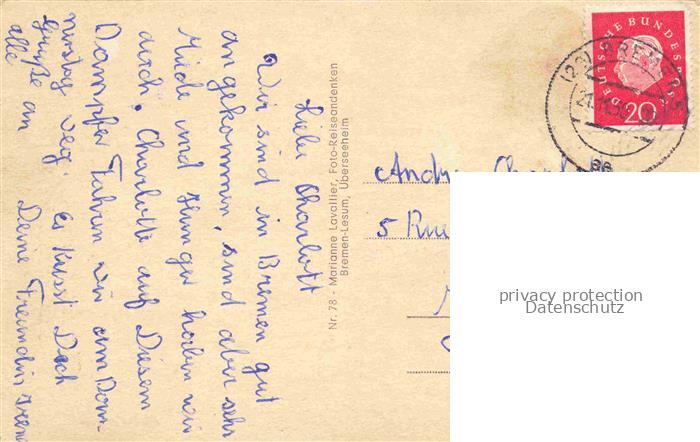 Liebe Charlott
Wir sind in Bremen gut
angekommen, sind aber sehr
Müde und Hunger haben wir
auch. Charlotte auf Diesem
Dampfer Fahren wir am Donn-
erstag weg. Es küsst Dich
Grüße an Deine Freundin
alle
Nr. 78 - Marianne Lavallier, Foto-Reiseandenken
Bremen-Lesum, Überseeheim
DEUTSCHE BUNDESPOST
20
(23) BREMEN 5
5 Rue
privacy protection
Datenschutz